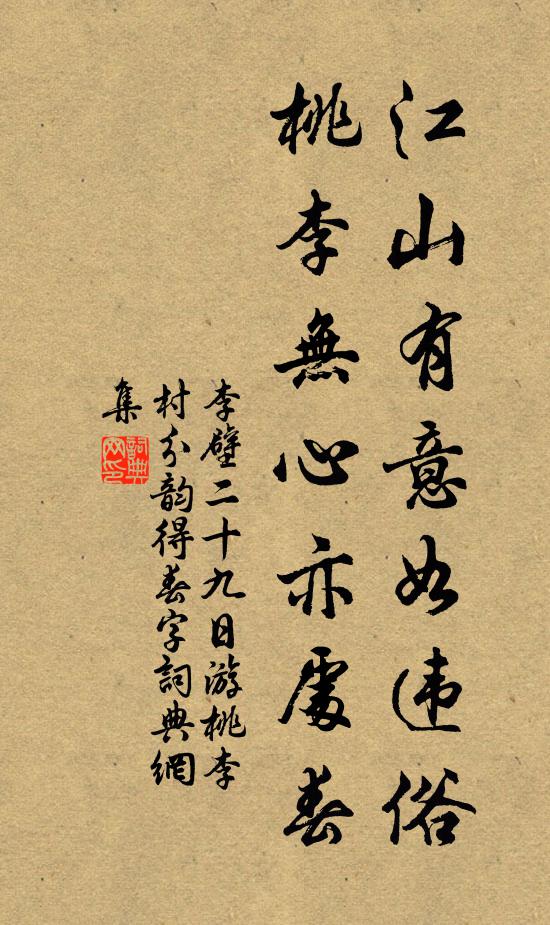 江山有意如违俗
桃李無心亦處春
李璧二十九日游桃李
村分韵得春字詞典網
集
詞典
网印